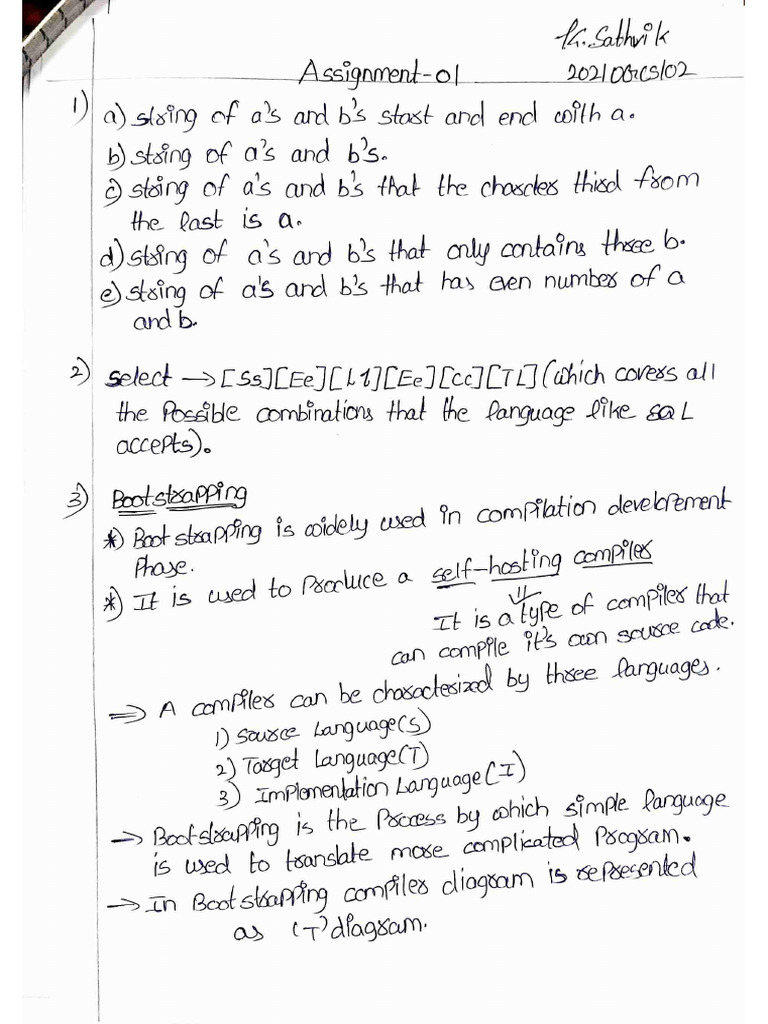 K. Sathvik
Assignment-01
1) a) string of a's and b's start and end with a.
b) string of a's and b's.
c) string of a's and b's that the charcter third from
the last is a.
d) string of a's and b's that only contains three b.
e) string of a's and b's that has even number of a
and b.
2) Select → [Ss][Ee][L1][Ee][Cc][TL] (which covers all
the Possible combinations that the language like SQL
accepts).
3) Bootstrapping
*) Boot strapping is widely used in compilation development
Phase.
*) It is used to Produce a self-hosting compiler
It is a type of compiler that
can compile it's own source code.
⇒ A compiler can be characterized by three languages.
1) Source Language(S)
2) Target Language(T)
3) Implementation Language(I)
→ Bootstrapping is the Process by which simple language
is used to translate more complicated Program.
→ In Boot strapping compiler diagram is represented
as (T) diagram.